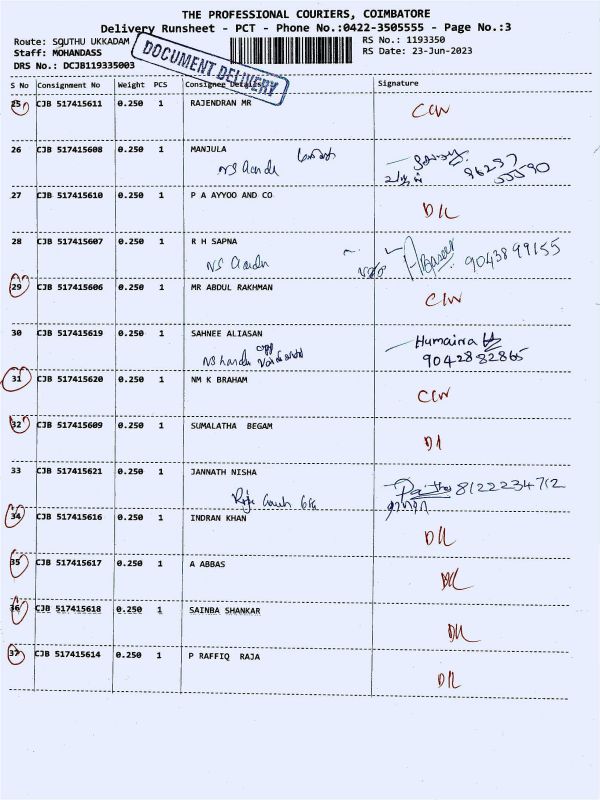 THE PROFESSIONAL COURIERS, COIMBATORE
Delivery Runsheet - PCT - Phone No.:0422-3505555 - Page No.:3
Route: SOUTHU UKKADAM
RS No.: 1193350
Staff: MOHANDASS
RS Date: 23-Jun-2023
DRS No.: DCJB119335003
DOCUMENT DELIVERY
S No Consignment No Weight PCS Consignee Details Signature
25 CJB 517415611 0.250 1 RAJENDRAN MR
26 CJB 517415608 0.250 1 MANJULA
27 CJB 517415610 0.250 1 P A AYYOO AND CO
D/L
28 CJB 517415607 0.250 1 R H SAPNA
9043899155
29 CJB 517415606 0.250 1 MR ABDUL RAKHMAN
30 CJB 517415619 0.250 1 SAHNEE ALIASAN
Humaira
9042882865
31 CJB 517415620 0.250 1 NM K BRAHAM
32 CJB 517415609 0.250 1 SUMALATHA BEGAM
33 CJB 517415621 0.250 1 JANNATH NISHA
8122234712
34 CJB 517415616 0.250 1 INDRAN KHAN
D/L
35 CJB 517415617 0.250 1 A ABBAS
D/L
36 CJB 517415618 0.250 1 SAINBA SHANKAR
D/L
37 CJB 517415614 0.250 1 P RAFFIQ RAJA
D/L